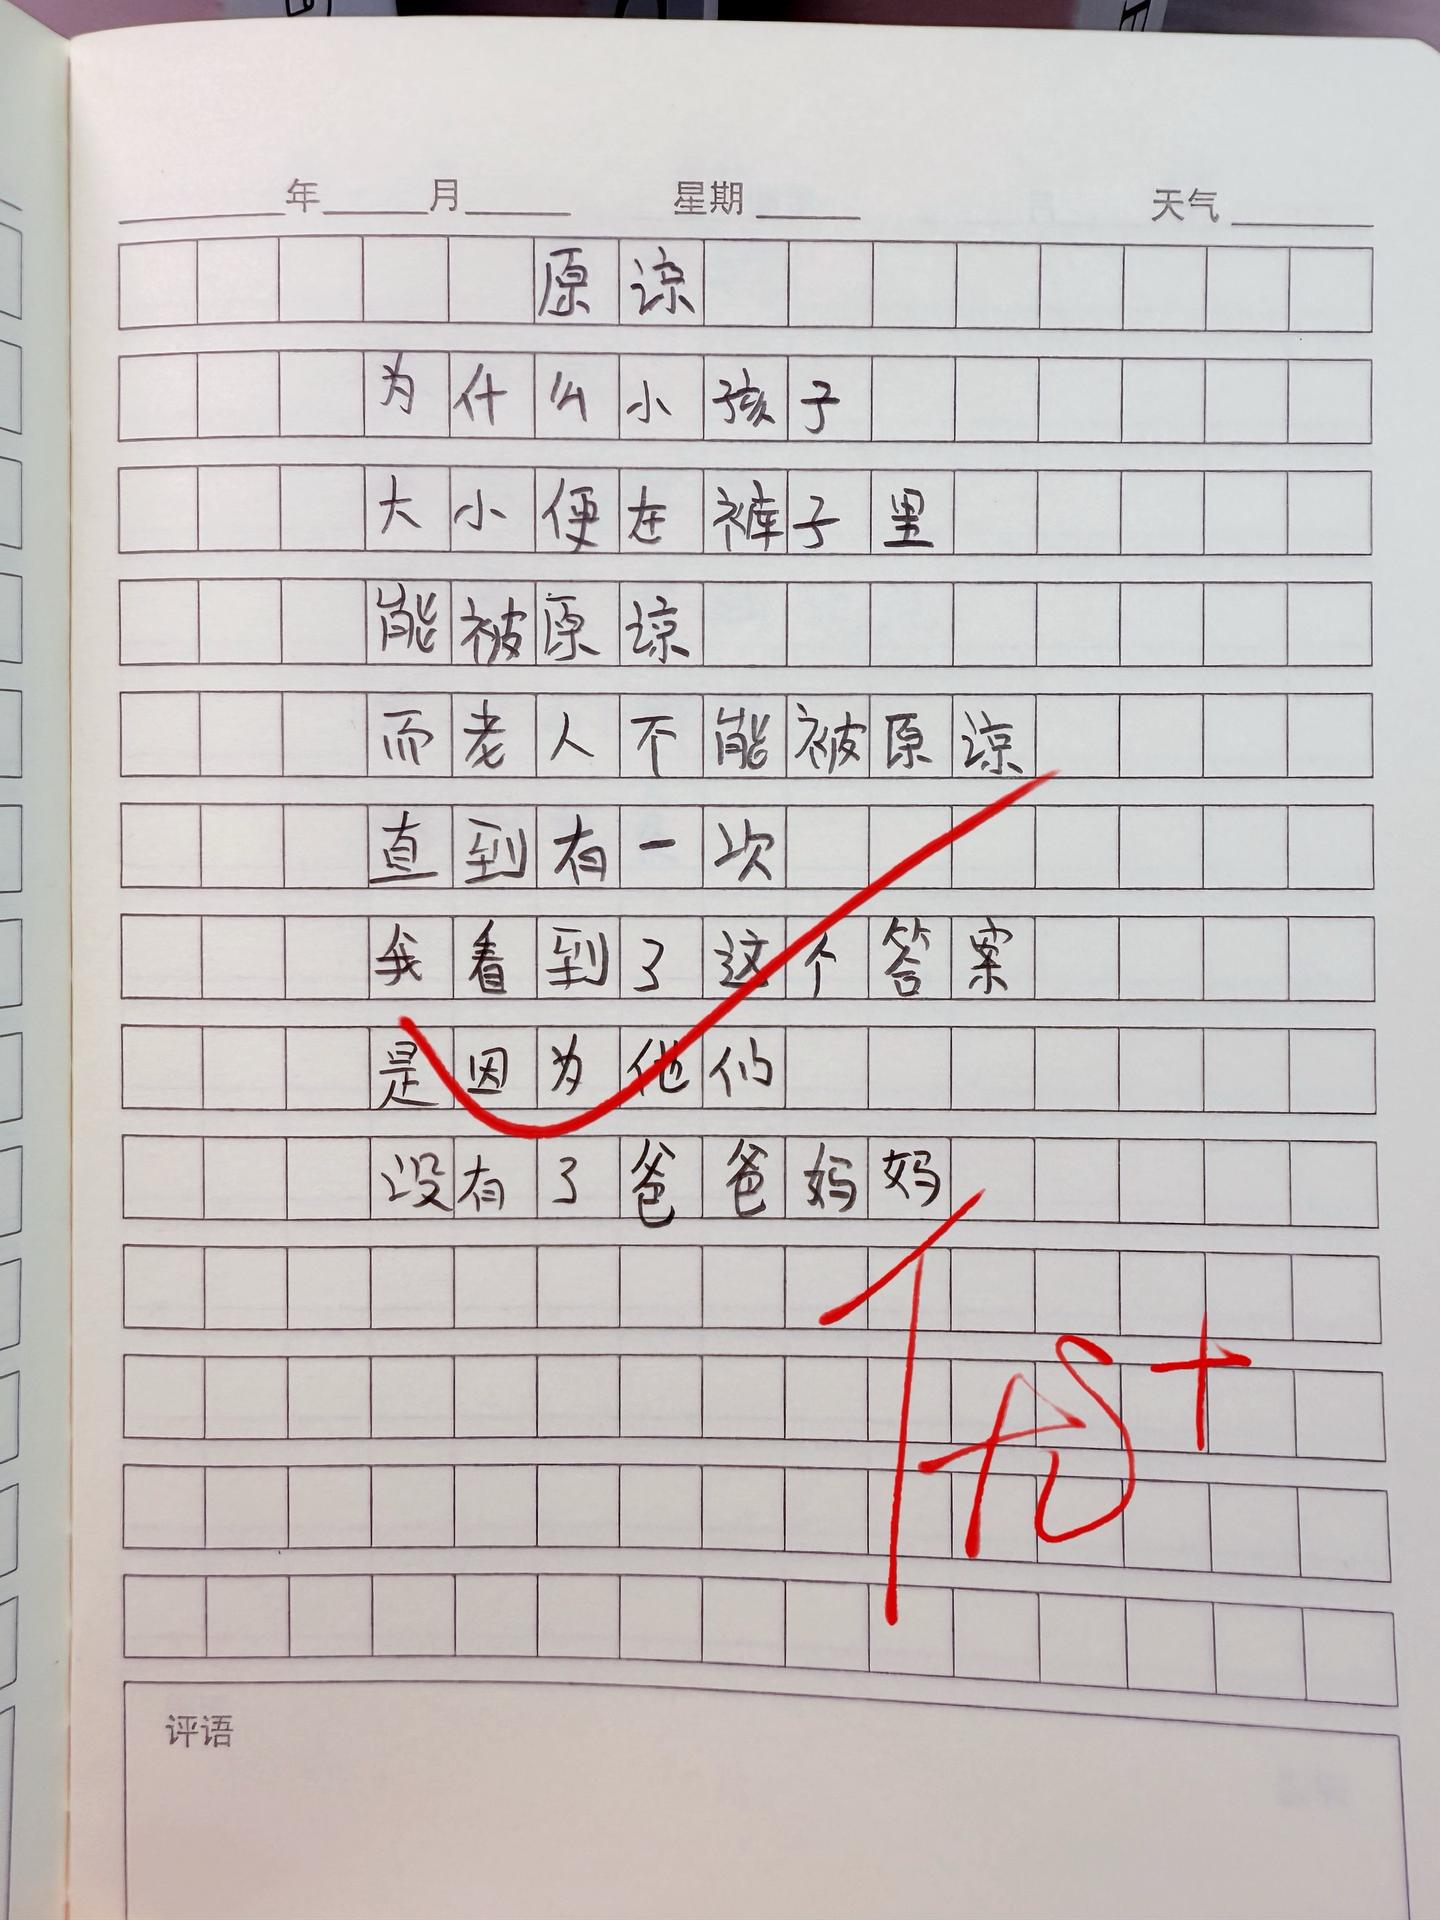 年 月 星期 天气
原谅
为什么小孩子
大小便在裤子里
能被原谅
而老人不能被原谅
直到有一次
我看到了这个答案
是因为他们
没有了爸爸妈妈
评语